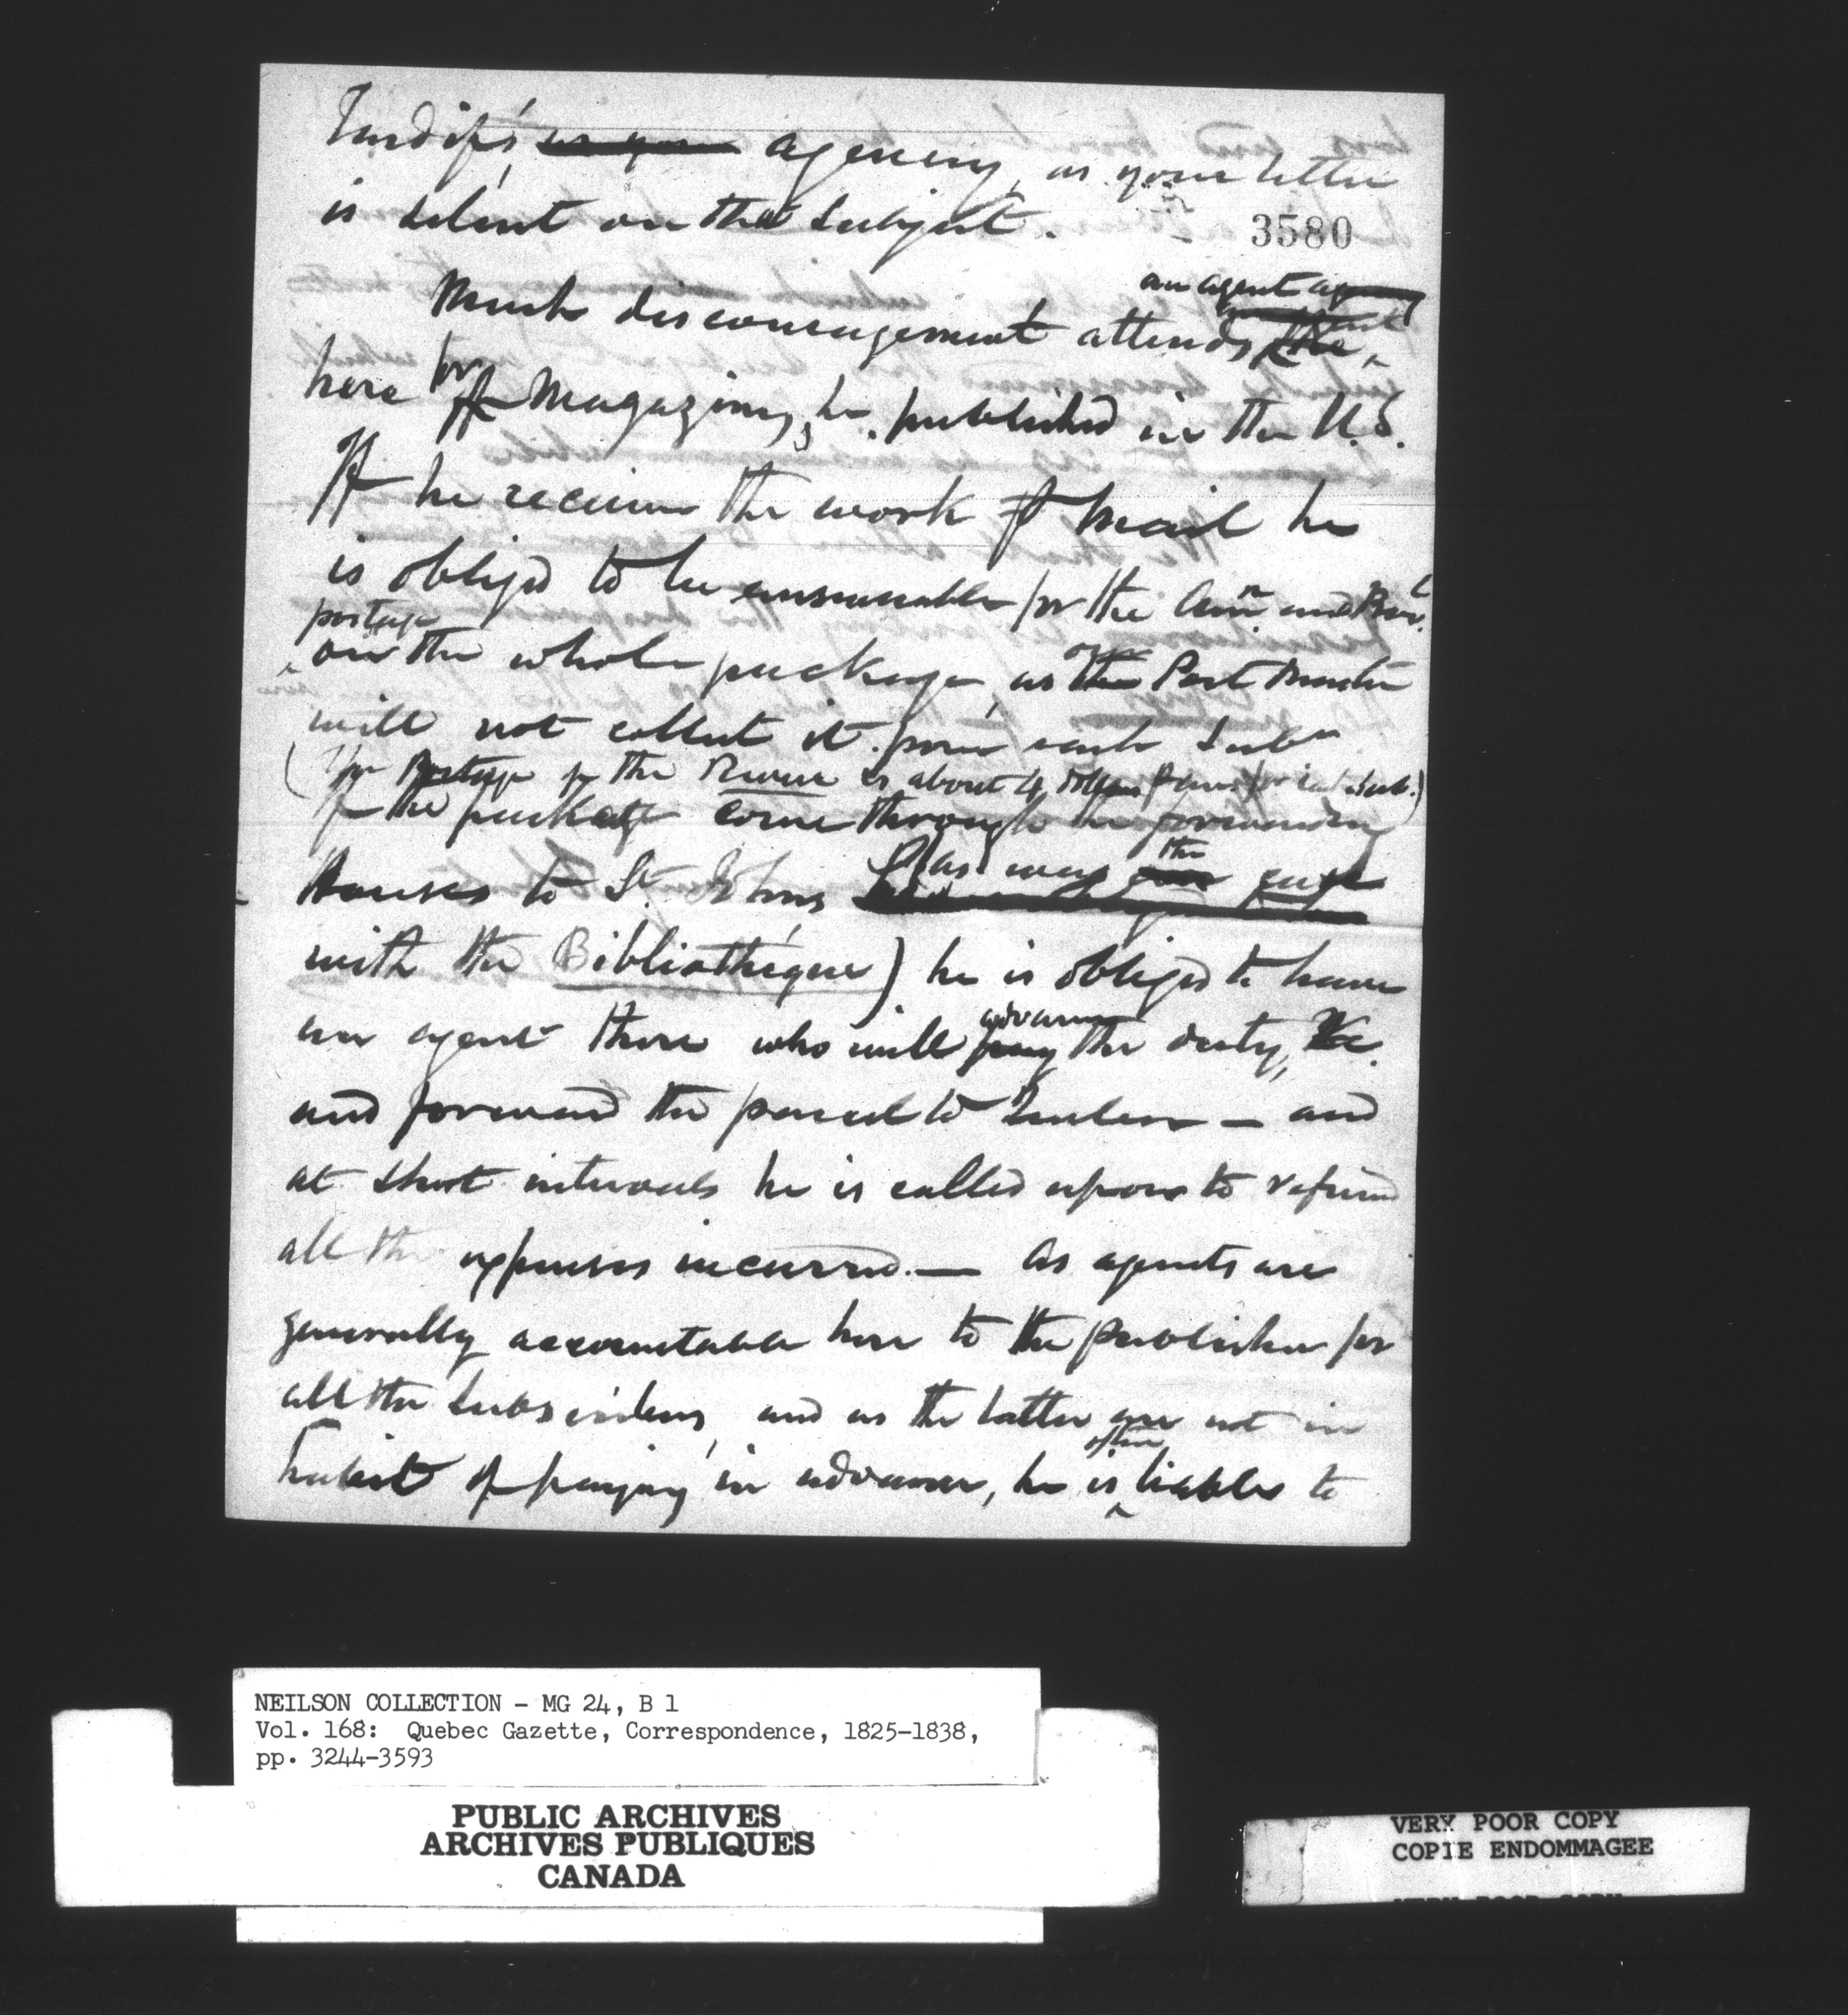 Tardif's agency, as your letter
is silent on that subject.
3580
an agent
Much discouragement attends
here for Magazines, &c. published in the U.S.
If he receives the work by mail he
is obliged to be answerable for the Amn and Provl
postage
on the whole package, as our Post Master
will not collect it from each Subr
(The Postage of the Review is about 4 dollars per an. for each Sub.)
If the package come through the forwarding
Houses to St. Johns (as was the case
with the Bibliothèque) he is obliged to have
an agent there who will advance the duty, &c.
and forward the parcel to Quebec — and
at short intervals he is called upon to refund
all the expenses incurred. — As agents are
generally accountable here to the publisher for
all the subscribers, and as the latter are not in
often
habit of paying in advance, he is liable to
NEILSON COLLECTION - MG 24, B 1
Vol. 168: Quebec Gazette, Correspondence, 1825-1838,
pp. 3244-3593
PUBLIC ARCHIVES
ARCHIVES PUBLIQUES
CANADA
VERY POOR COPY
COPIE ENDOMMAGEE
VERY POOR COPY